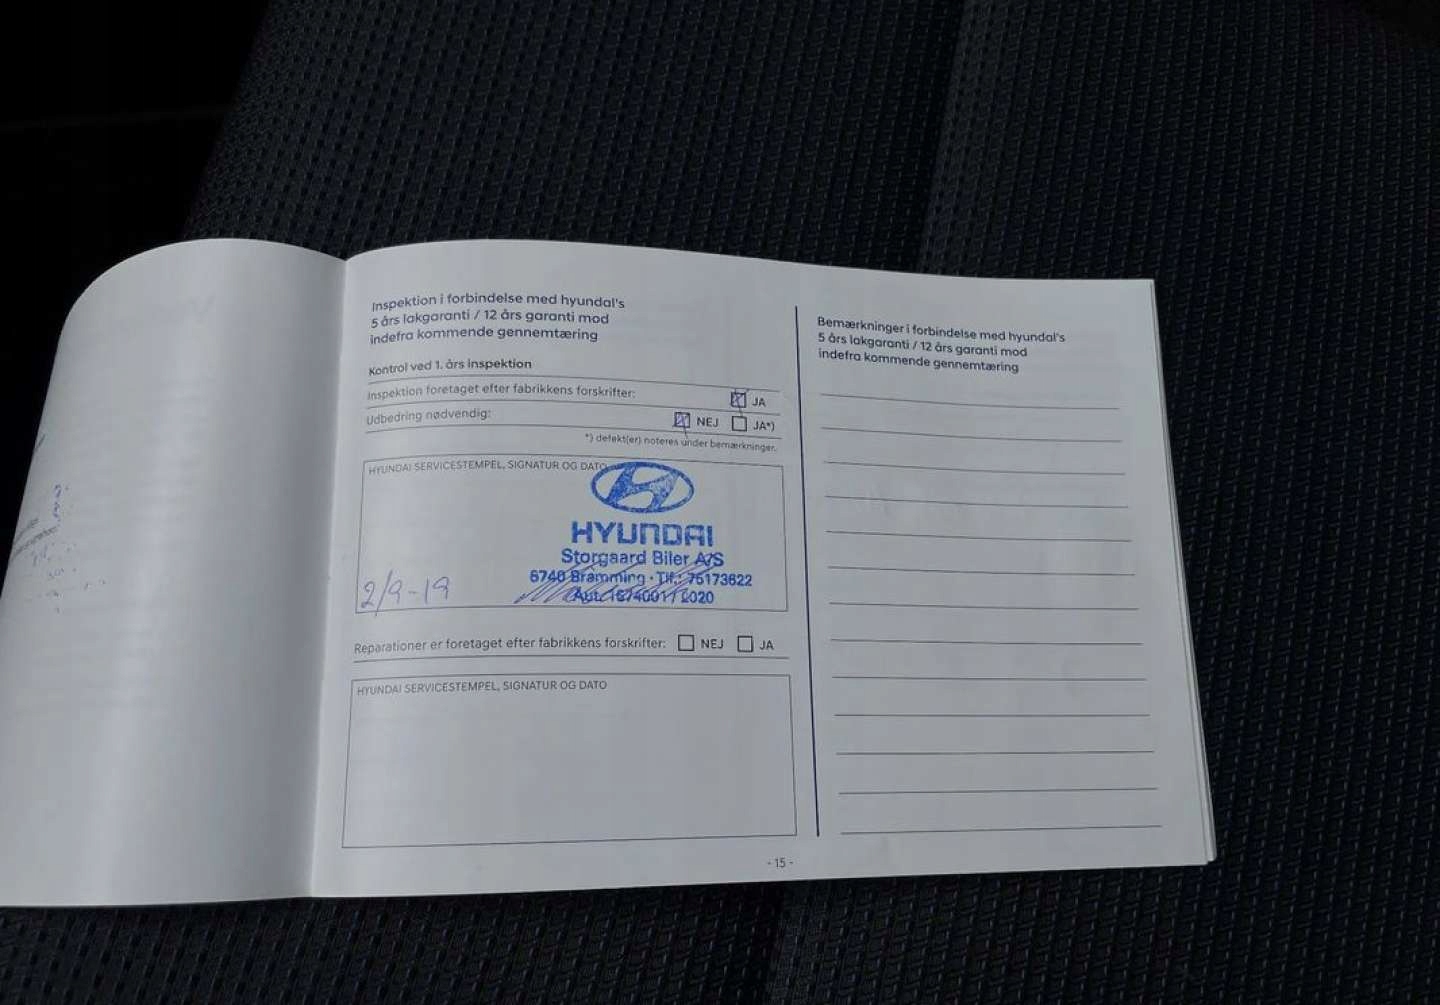 Inspektion i forbindelse med hyundai's
5 års lakgaranti / 12 års garanti mod
indefra kommende gennemtæring
Kontrol ved 1. års inspektion
Inspektion foretaget efter fabrikkens forskrifter: JA
Udbedring nødvendig: NEJ JA*)
*) defekt(er) noteres under bemærkninger.
HYUNDAI SERVICESTEMPEL, SIGNATUR OG DATO
HYUNDAI
Storgaard Biler A/S
6740 Bramming · Tlf.: 75173622
2/9-19
Reparationer er foretaget efter fabrikkens forskrifter: NEJ JA
HYUNDAI SERVICESTEMPEL, SIGNATUR OG DATO
- 15 -
Bemærkninger i forbindelse med hyundai's
5 års lakgaranti / 12 års garanti mod
indefra kommende gennemtæring